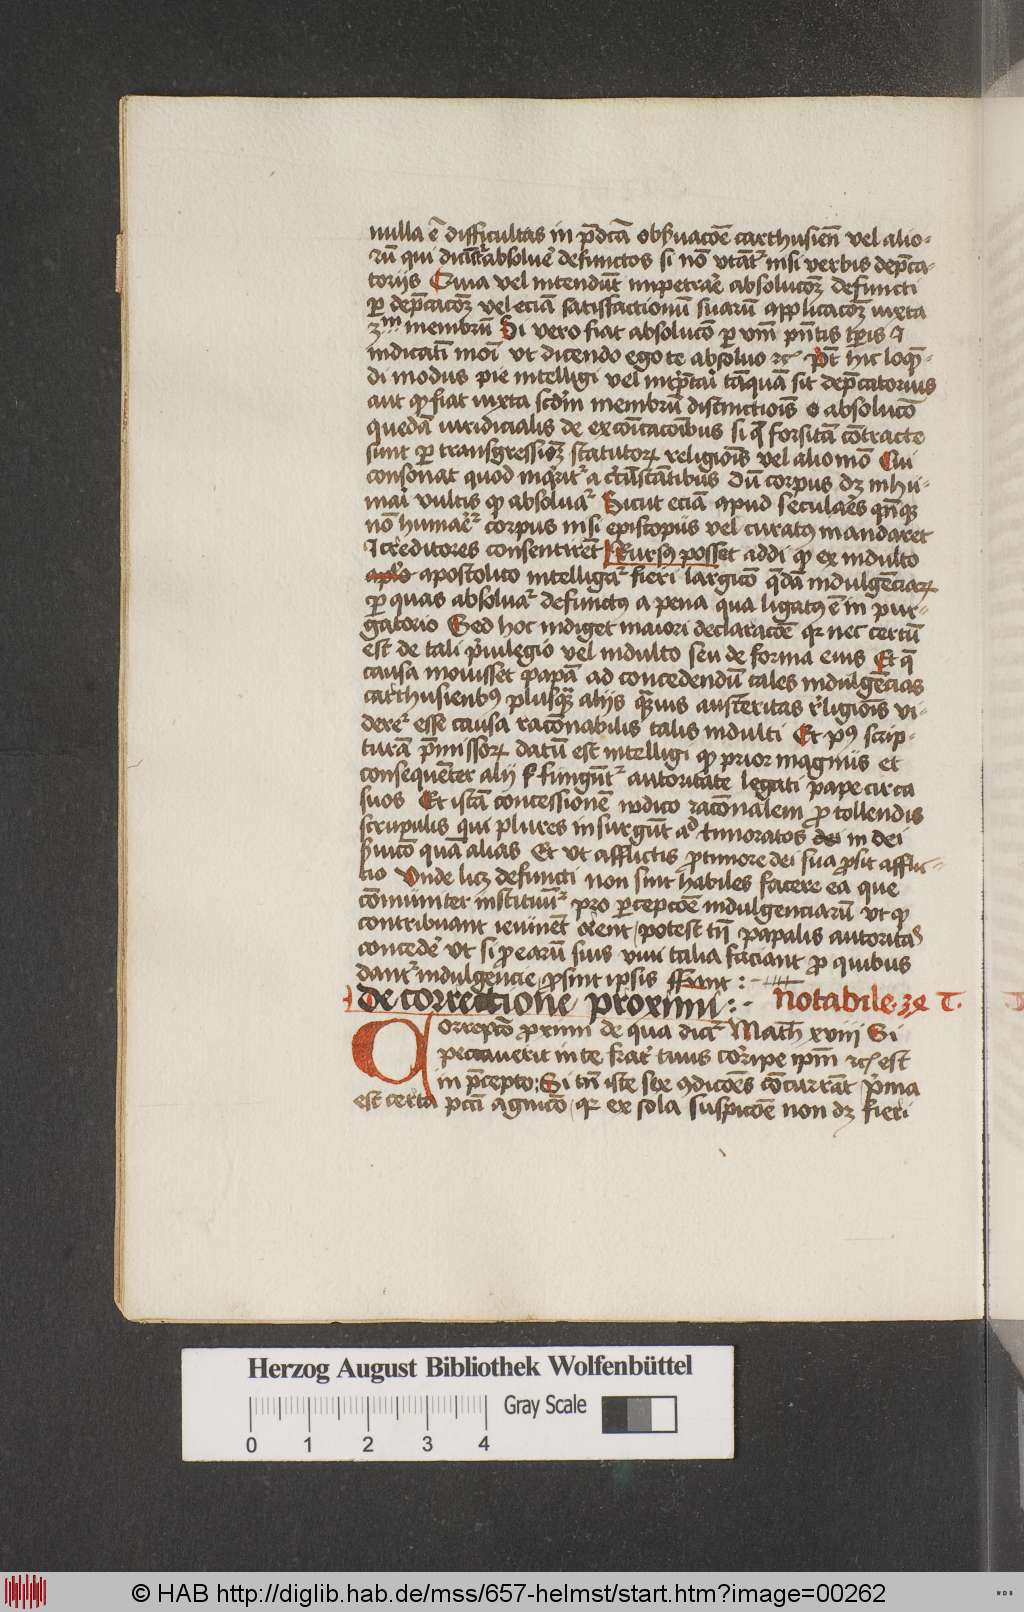 nulla ē difficultas in p̄dcā obẜuacōe carthusien̄ vel alio-
rū qui dicūt᷑ absolue᷑ defunctos si nō vtāt᷑ nisi verbis dep̄ca-
toriis Quia vel intendūt impetrare absolucōꝫ defuncti
ꝑ dep̄cacōꝫ vel eciā satisfactionū suarū applicacōꝫ iuxta
3m membrū Si vero fiat absolucō ꝑ vim pn̄tis tp̄ris
indicati mōi vt dicendo ego te absoluo ꝛc̄ Pōt hic loqn̄-
di modus pie intelligi vel int̄pretari tāquā sit dep̄catorius
aut ꝙ fiat iuxta scd̄m membrū distinctiōis absolucō
quedā iuridicialis de excōicacōibus si q̄ forsitā cōtracte
sunt ꝑ transgressiōꝫ statutoꝝ religiōis vel alio mō Cui
consonat quod inq̄rit᷑ a circūstātibus Dū corpus dꝫ inhu-
mari vultis ꝙ absoluat᷑ Sicut eciā apud seculares qn̄qꝫ
nō humat᷑ corpus nisi episcopus vel curatꝰ mandaret
creditores consentirēt Rursꝰ posset addi ꝙ ex indulto
aplō apostolico intelligat᷑ fieri largicō q̄dā indulgēciaꝝ
ꝑ quas absoluat᷑ defunctꝰ a pena qua ligatꝰ ē in pur-
gatorio Sed hoc indiget maiori declaracōe qꝛ nec certū
est de tali p̄uilegio vel indulto seu de forma eius Et q̄
causa mouisset papā ad concedendū tales indulgēcias
carthusienbꝰ plusqꝫ aliis qꝫuis austeritas religiōis vi-
dere᷑ esse causa racōnabilis talis indulti Et pꝰ scrip-
turā p̄missoꝝ datū est intelligi ꝙ prior magnus et
consequēter alij fungūt᷑ autoritate legati pape circa
suos Et istā concessionē iudico racōnalem ꝓ tollendis
scrupulis qui plures insurgūt ad timoratos dei in dei
ẜuicō quā alias Et vt afflictis ꝓ timore dei sua ꝓsit afflic-
tio Unde licꝫ defuncti non sint habiles facere ea que
cōmuniter instituūt᷑ pro ꝑcepcōe indulgenciarū vt ꝙ
contribuant ieiunēt orent potest tn̄ papalis autoritas
concede᷑ vt si ꝓ earū suis viui talia faciant ꝓ quibus
dant᷑ indulgencie ꝓsint ipsis
de correctione proximi :· Notabile· 39 T.
Correpcō proximi de qua dict᷑ Math xviii Si
peccauerit in te frat᷑ tuus corripe ip̄m ꝛc̄ est
in p̄cepto: Si tn̄ iste sex ꝯdicōes cōcurrāt p̄ma
est certa pcci agnicō qꝛ ex sola suspicōe non dꝫ fieri
Herzog August Bibliothek Wolfenbüttel
Gray Scale
0 1 2 3 4
© HAB http://diglib.hab.de/mss/657-helmst/start.htm?image=00262